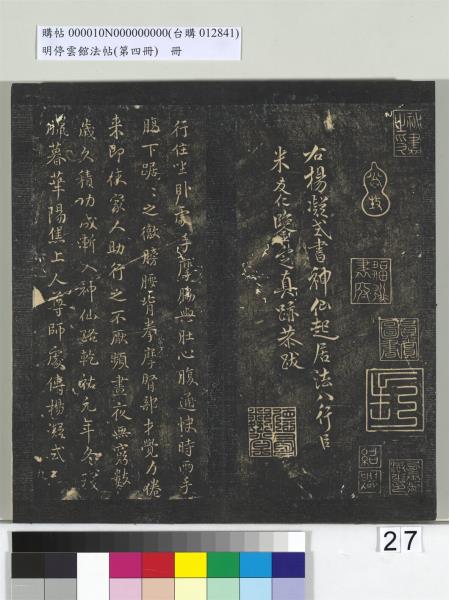 購帖 000010N000000000(台購 012841)
明停雲館法帖(第四冊) 冊
右楊凝式書神仙起居法八行臣
米友仁鑒定真跡恭跋
行住坐卧處手摩脇與肚心腹通快時兩手
腸下踞〻之徹膀腰背拳摩腎部才覺力倦
来即使家人助行之不厭頻晝夜無窮數
歲久積功成漸入神仙路乾祐元年冬殘
臘暮華陽焦上人尊師處傳楊凝式
27